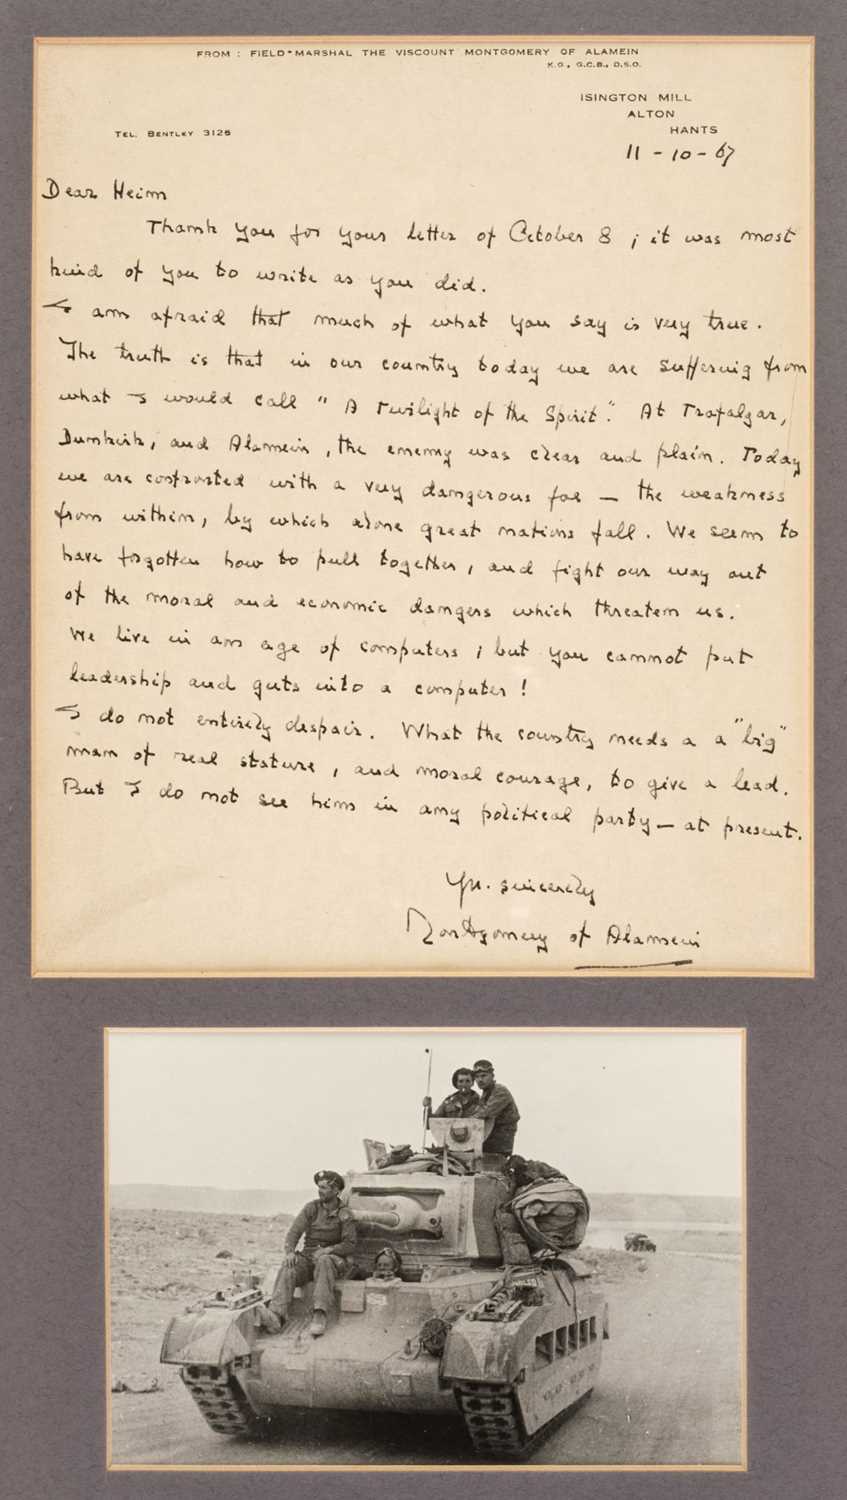 FROM : FIELD-MARSHAL THE VISCOUNT MONTGOMERY OF ALAMEIN
K.G., G.C.B., D.S.O.
ISINGTON MILL
ALTON
HANTS
TEL. BENTLEY 3126
11 - 10 - 67
Dear Heim
Thank you for your letter of October 8 ; it was most
kind of you to write as you did.
I am afraid that much of what you say is very true.
The truth is that in our country today we are suffering from
what I would call " A Twilight of the Spirit". At Trafalgar,
Dunkirk, and Alamein, the enemy was clear and plain. Today
we are confronted with a very dangerous foe - the weakness
from within, by which alone great nations fall. We seem to
have forgotten how to pull together, and fight our way out
of the moral and economic dangers which threaten us.
We live in an age of computers ; but you cannot put
leadership and guts into a computer !
I do not entirely despair. What the country needs a a "big"
man of real stature, and moral courage, to give a lead.
But I do not see him in any political party - at present.
Yrs. sincerely
Montgomery of Alamein